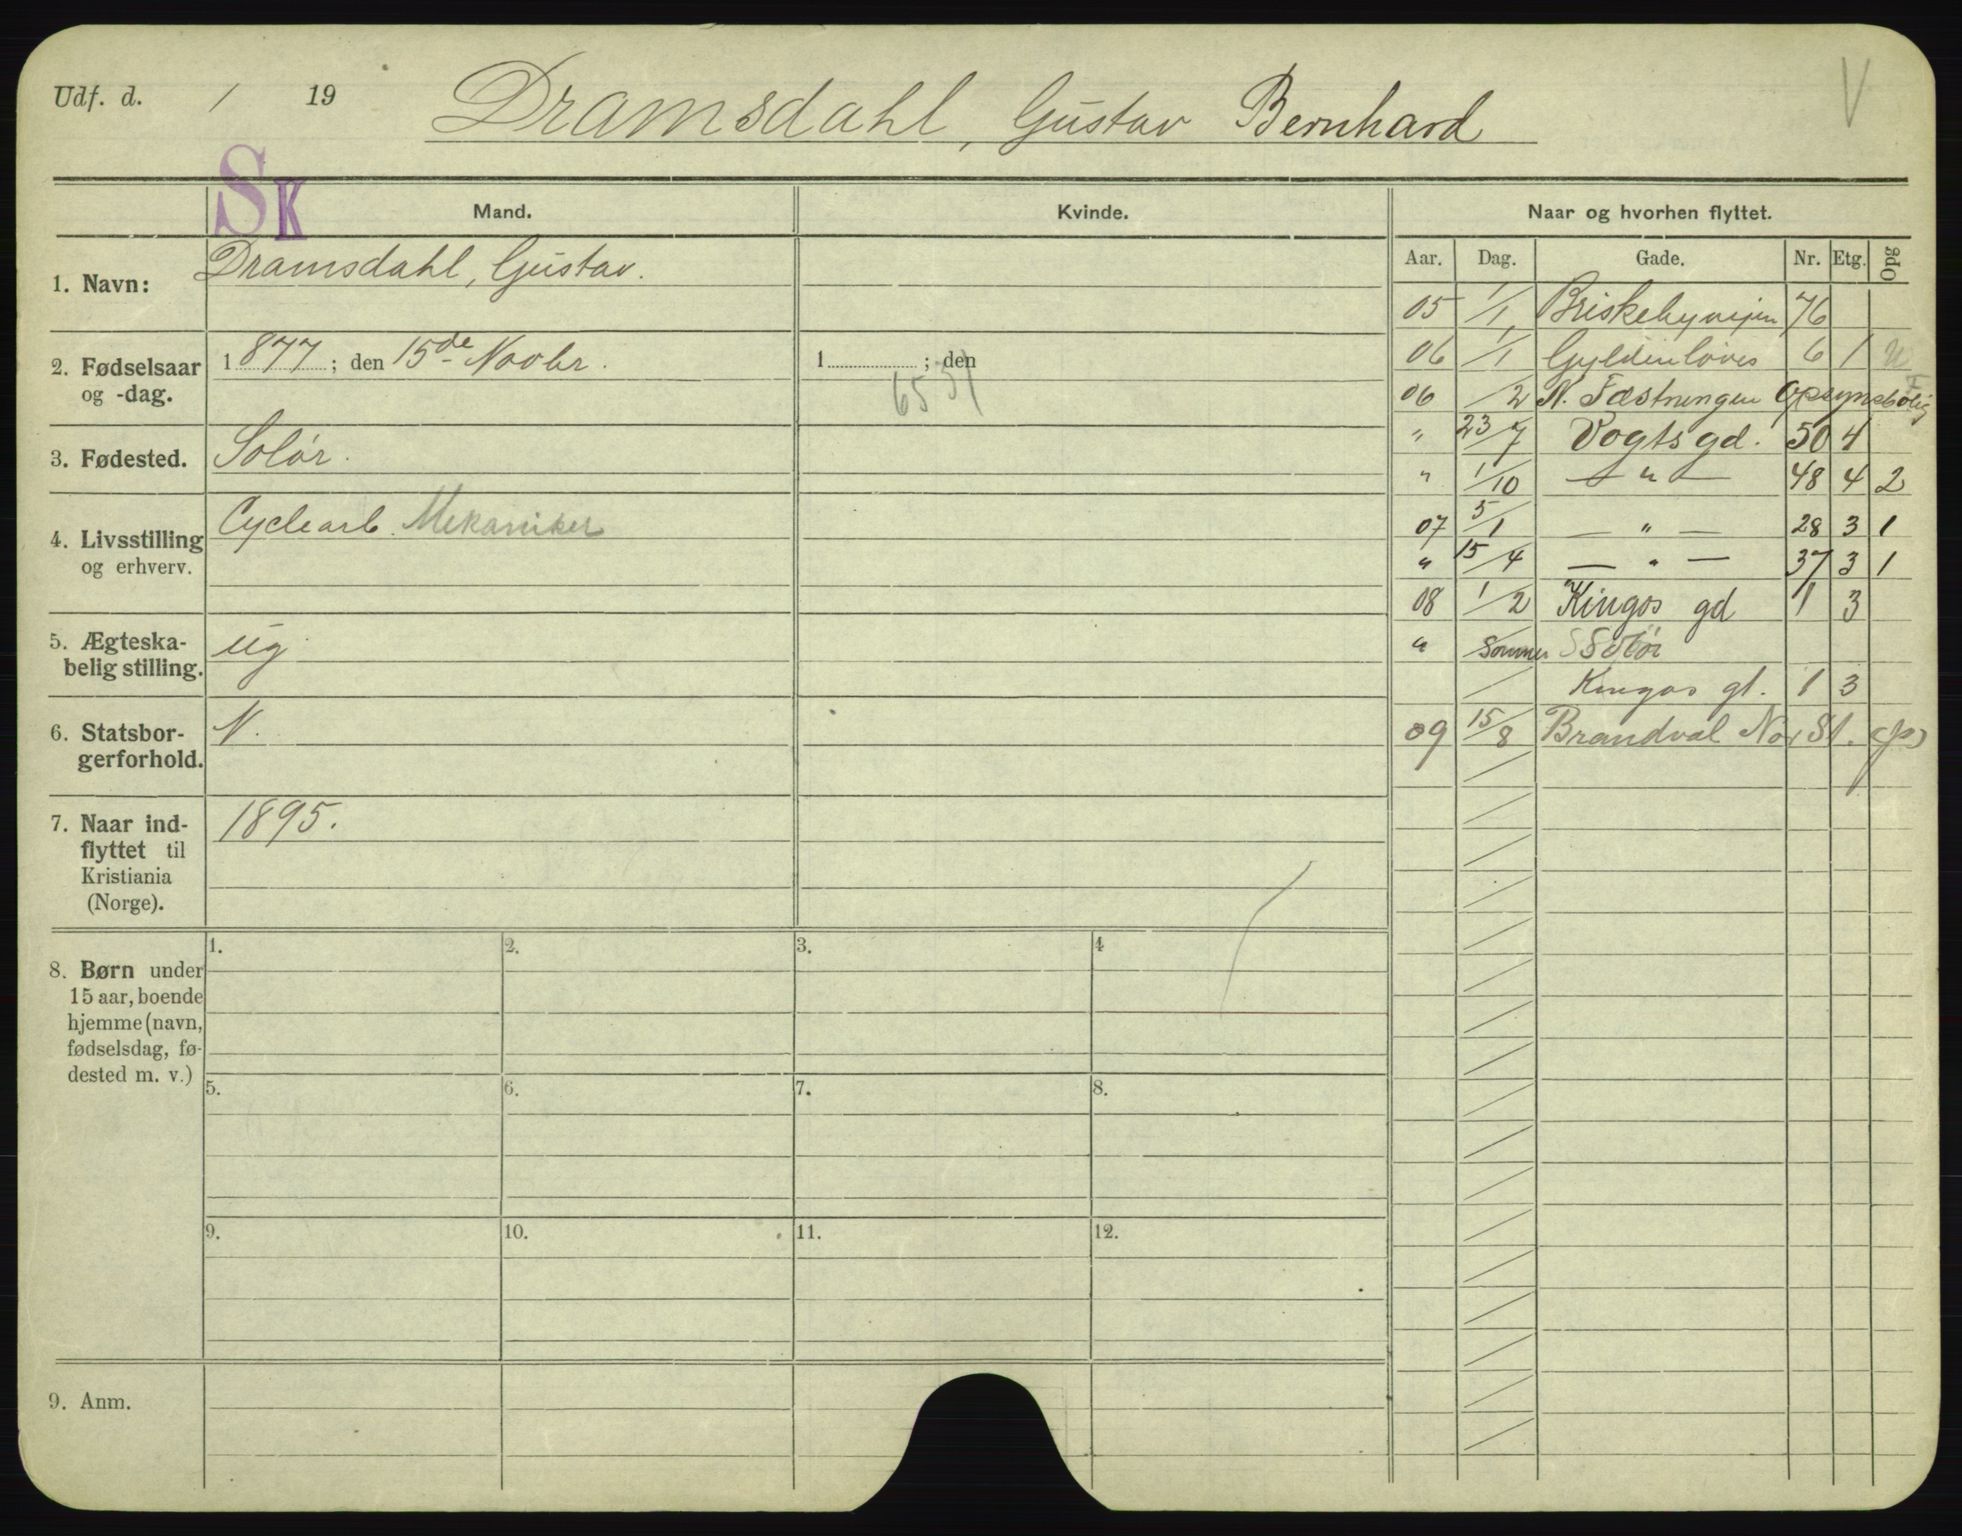 Udf. d. / 19 Dramsdahl, Gustav Bernhard V
SK
Mand. Kvinde. Naar og hvorhen flyttet.
Aar. Dag. Gade. Nr. Etg. Opg
1. Navn: Dramsdahl, Gustav.
2. Fødselsaar og -dag. 1877; den 15de Novbr. 1 ; den
65 51
3. Fødested. Solør.
4. Livsstilling og erhverv. Cyclearb. Mekaniker
5. Ægteska-
belig stilling. ug
6. Statsbor-
gerforhold. N.
7. Naar ind-
flyttet til
Kristiania
(Norge). 1895.
05 1/1 Briskebyveien 76
06 1/1 Gyldenløves 6 1
06 /2 N. Fæstningen Opsynsbolig
" 23/7 Vogts gd. 50 4
" 1/10 — " — 48 4 2
07 5/1 — " — 28 3 1
" 15/4 — " — 37 3 1
08 1/2 Kingos gd 1 3
" Sommer Solør
/ Kingos gt. 1 3
09 15/8 Brandval Nor St.
8. Børn under
15 aar, boende
hjemme (navn,
fødselsdag, fø-
dested m. v.)
1. 2. 3. 4
5. 6. 7. 8.
9. 10. 11. 12.
9. Anm.